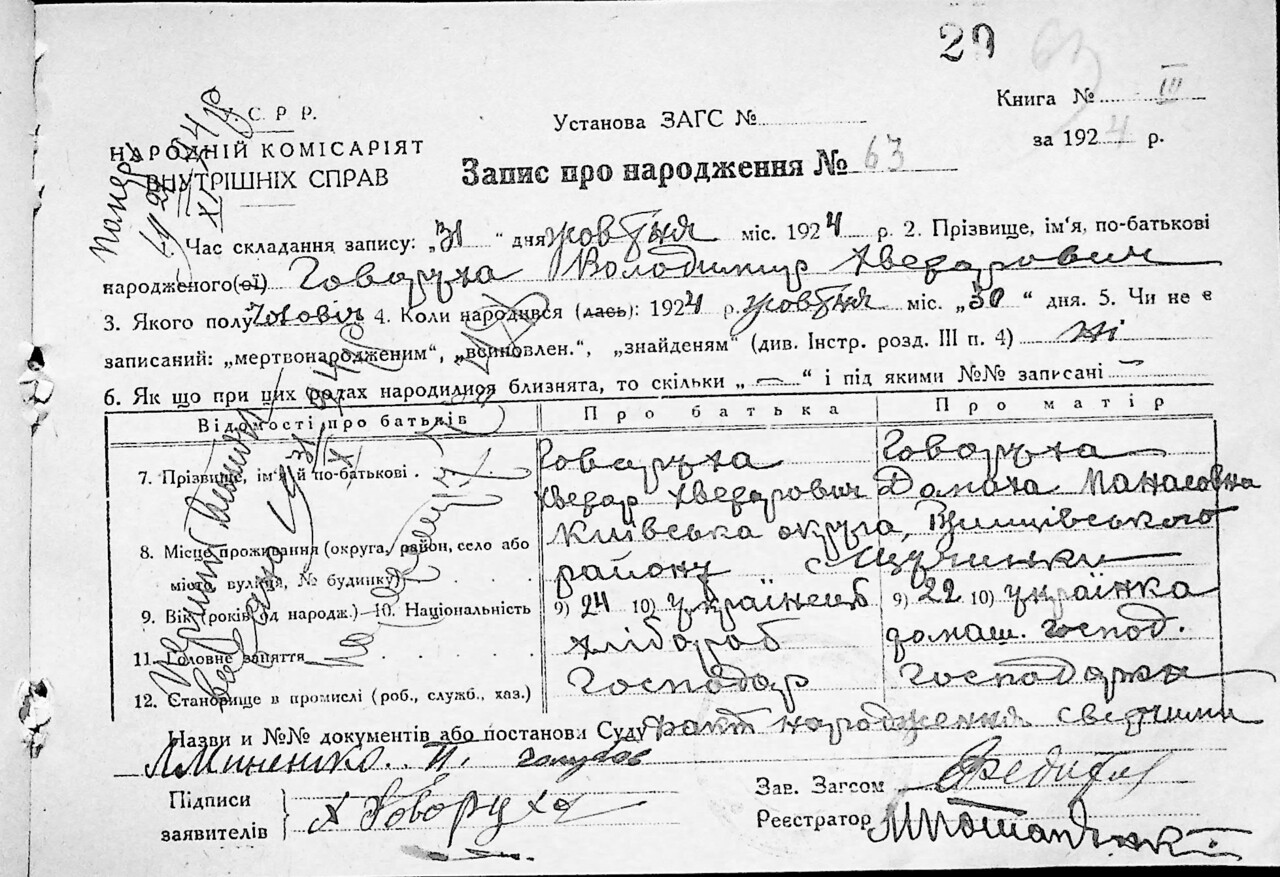 29 63
У. С. Р. Р.
НАРОДНІЙ КОМІСАРІЯТ
ВНУТРІШНІХ СПРАВ
Установа ЗАГС №
Книга № III
за 1924 р.
Запис про народження № 63
Час складання запису: „31“ дня жовтня міс. 1924 р. 2. Прізвище, ім'я, по-батькові
народженого(ої) Говоруха Володимир Хведорович
3. Якого полу Чоловіч 4. Коли народився (лась): 1924 р. жовтня міс. „30“ дня. 5. Чи не є
записаний: „мертвонародженим“, „всиновлен.“, „знайденям“ (див. Інстр. розд. III п. 4) ні
6. Як що при цих родах народилися близнята, то скільки „—“ і під якими №№ записані —
Відомості про батьків Про батька Про матір
7. Прізвище, ім'я й по-батькові Говоруха Говоруха
Хведор Хведорович Домаха Панасовна
8. Місце проживання (округа, район, село або Київська округа,
місто, вулиця, № будинку) району с Щучинки
9. Вік (років од народж.) — 10. Національність 9) 24 10) українець 9) 22 10) українка
11. Головне заняття хлібороб домаш. господ.
12. Становище в промислі (роб., служб., хаз.) Господар Господарка
Назви и №№ документів або постанови Суду факт народження
Підписи
заявителів Х Говоруха
Зав. Загсом
Реєстратор